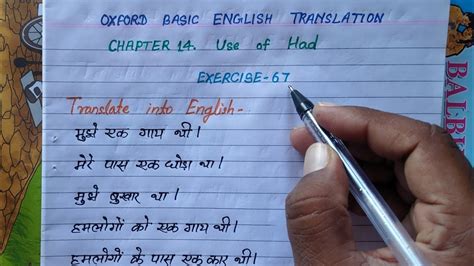 OXFORD BASIC ENGLISH TRANSLATION
CHAPTER 14. Use of Had
EXERCISE-67
Translate into English-
मुझे एक गाय थी।
मेरे पास एक घोड़ा था।
मुझे बुखार था।
हमलोगों को एक गाय थी।
हमलोगों के पास एक कार थी।